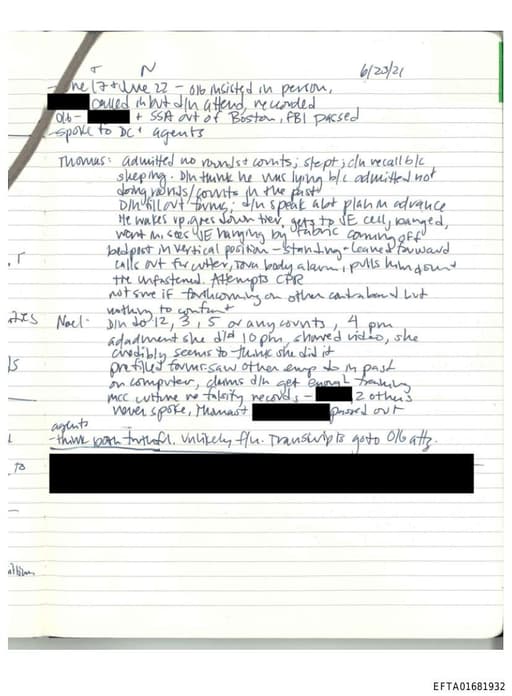 T N 6/23/21
June 17 + June 22 - OIG insisted in person,
called in but d/n attend, recorded
OIG- + SSA out of Boston, FBI passed
-spoke to DC + agents
Thomas: admitted no rounds + counts; slept; c/n recall b/c
sleeping. D/n think he was lying b/c admitted not
doing rounds/counts in the past
D/n fill out forms; d/n speak abt plan in advance
He wakes up, goes down tier, gets to JE cell, banged,
went in, sees JE hanging by fabric coming off
bedpost in vertical position - standing - leaned forward
calls out for cutter, body alarm, pulls him down +
unfastened. Attempts CPR
not sure if forthcoming on other contraband but
nothing to confront
Noel: D/n do 12, 3, 5 or any counts, 4 pm
adamant she did 10 pm, showed video, she
credibly seems to think she did it
prefilled forms - saw other emp do in past
on computer, claims d/n get enough training
MCC culture re falsify records - 2 others
never spoke, Thomas + passed out
agents
-think both truthful. Unlikely f/u. Transcripts go to OIG atty.
EFTA01681932